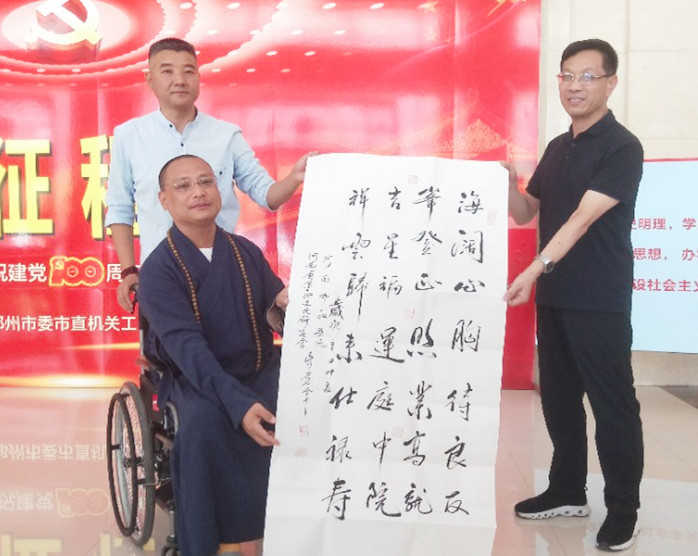 征程
祝建党100周
郑州市委市直机关工
海阔心胸待良友
峯登正照業高就
吉星福運庭中院
祥雲歸来仕禄寿
明理，学
思想，办
设社会主义